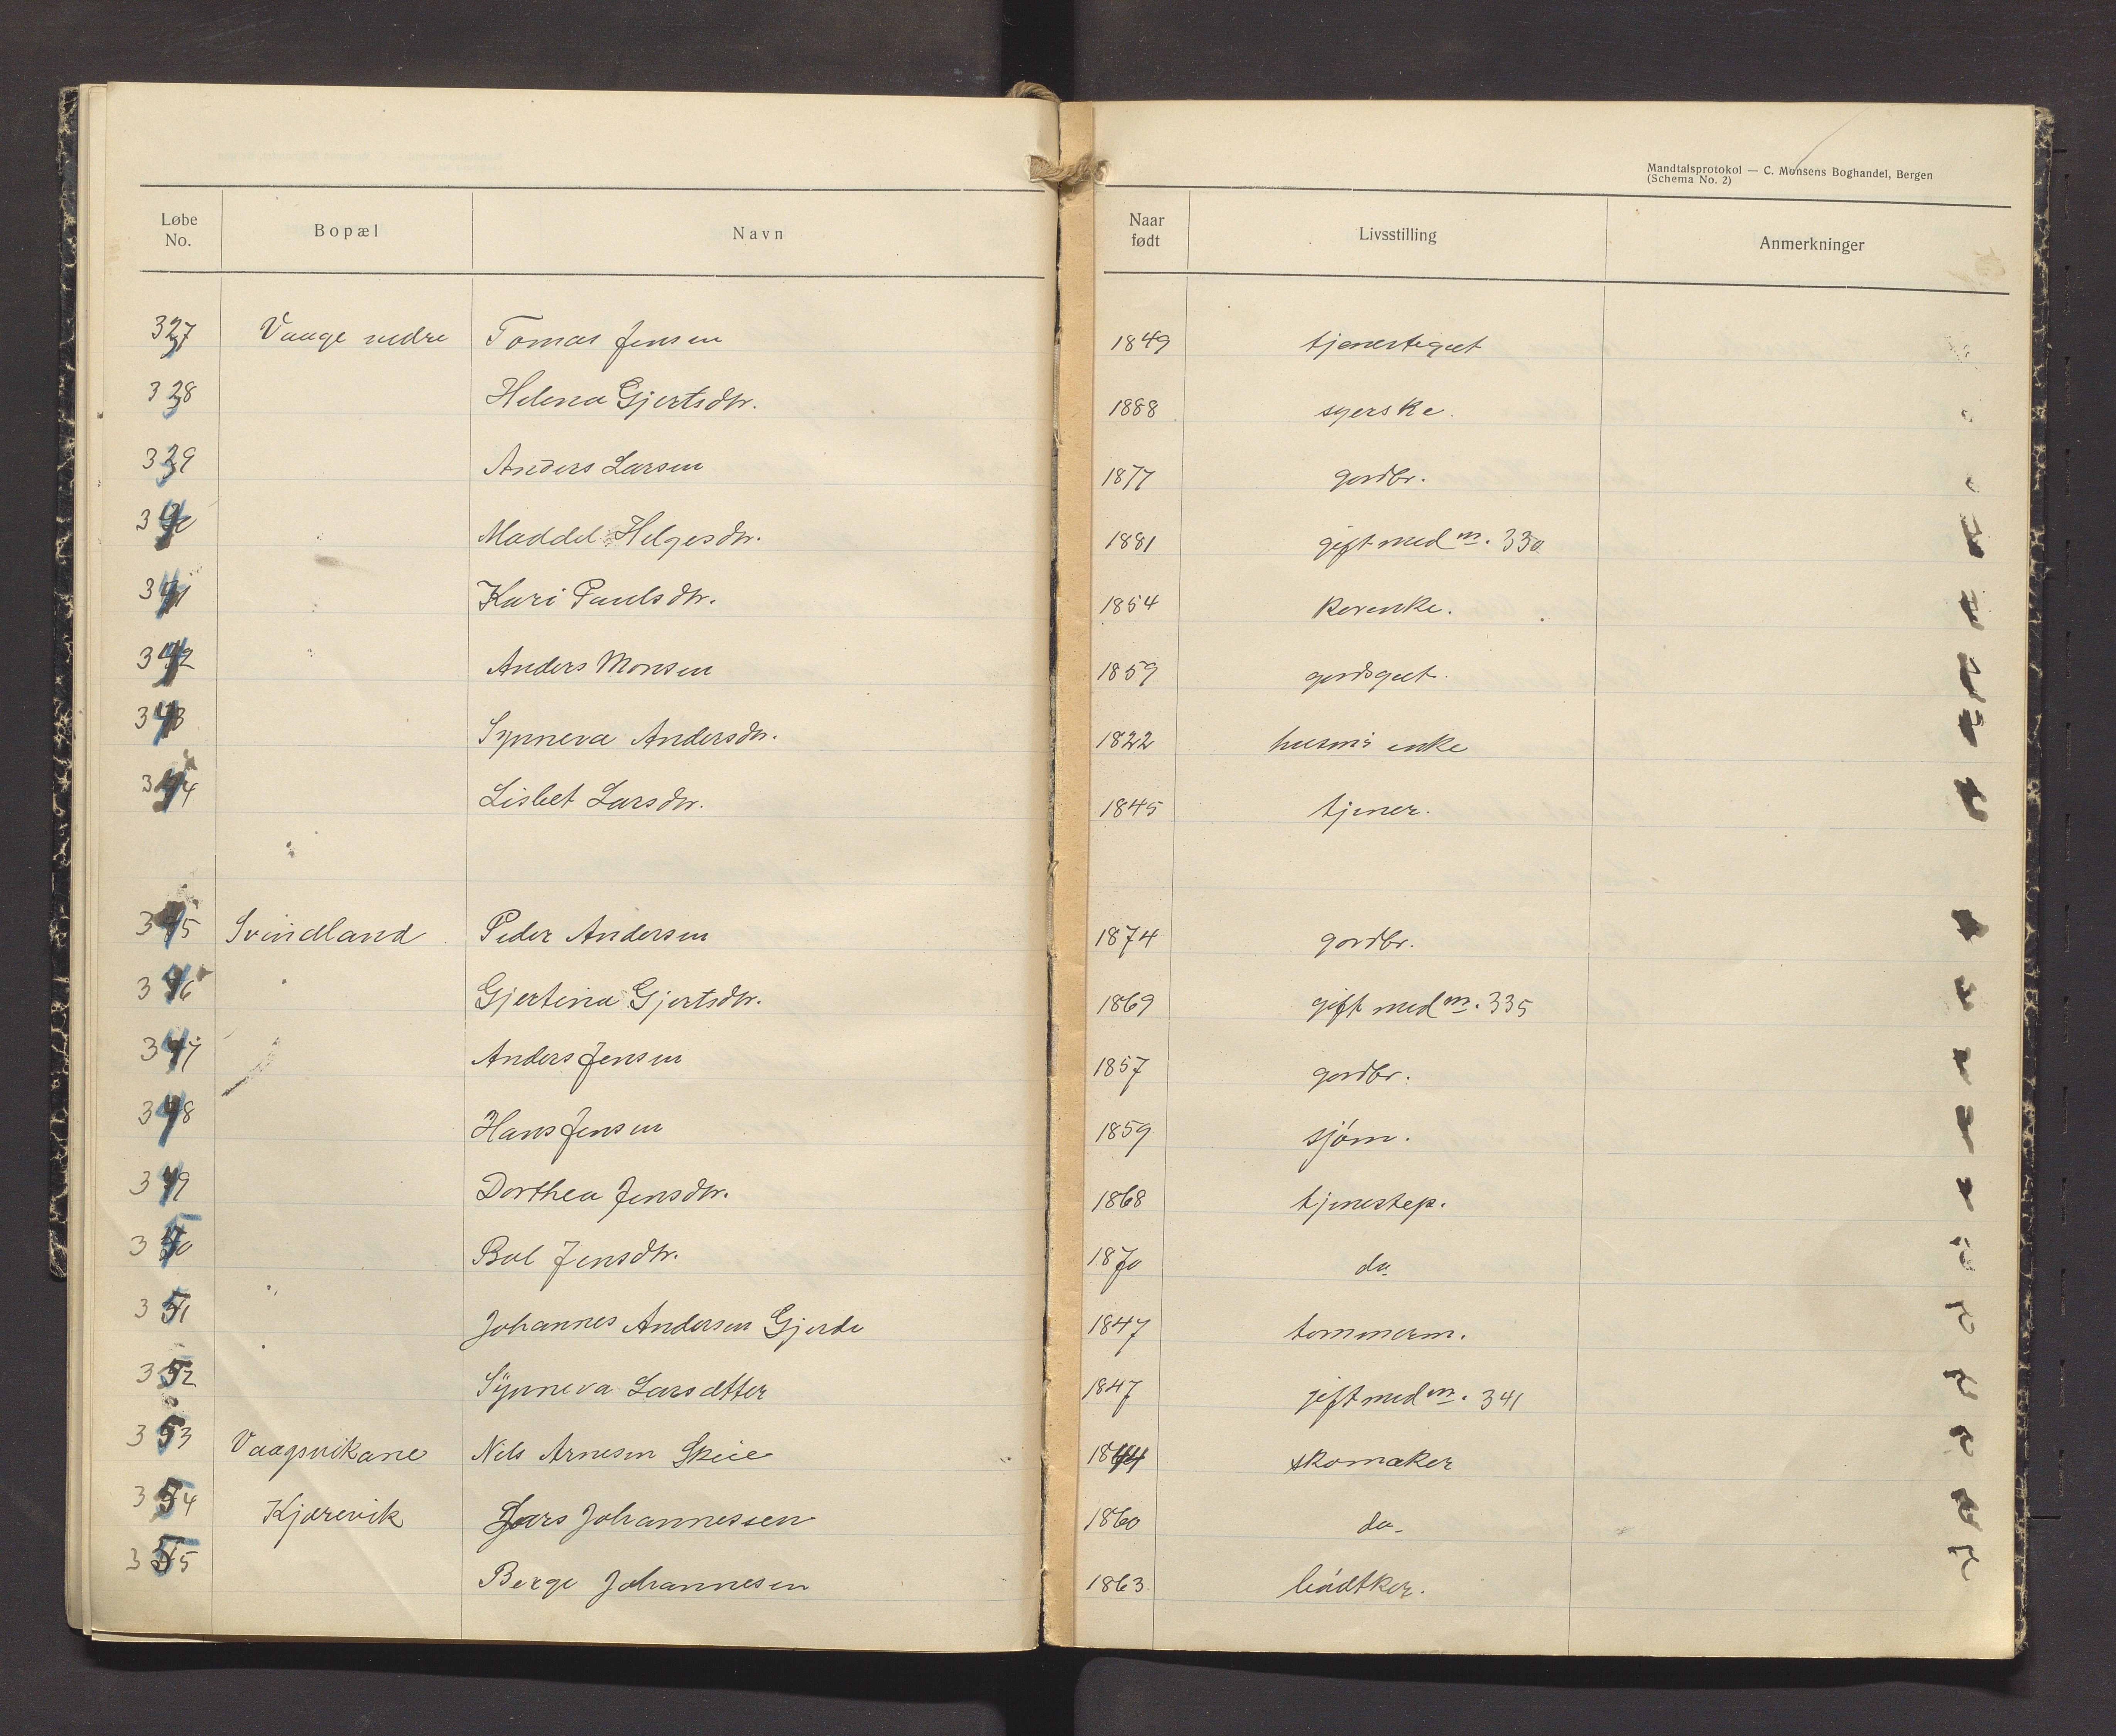 Mandtalsprotokol — C. Monsens Boghandel, Bergen
(Schema No. 2)
Løbe No. Bopæl Navn Naar født Livsstilling Anmerkninger
Vaage nedre Tomas Jensen 1849 tjenestegut
Helena Gjertsdtr. 1888 syerske.
Anders Larsen 1877 gardbr.
Maddel Helgesdtr. 1881 gift med m. 330
341 Kari Paulsdtr. 1854 kårenke.
342 Anders Monsen 1859 gardsgut.
343 Synneva Andersdtr. 1822 husm's enke
344 Lisbet Larsdtr. 1845 tjener.
345 Svindland Peder Andersen 1874 gardbr.
346 Gjertina Gjertsdtr. 1869 gift med m. 335
347 Anders Jensen 1857 gardbr.
348 Hans Jensen 1859 sjóm.
349 Dorthea Jensdtr. 1868 tjenestep.
350 Bol Jensdtr. 1870 do
351 Johannes Andersen Gjerde 1847 tømmerm.
352 Synneva Larsdtter 1847 gift med m. 341
353 Vaagsvikane Nils Arnesen Skeie 1844 skomaker
354 Kjærevik Lars Johannessen 1860 do.
355 Berge Johannesen 1863 bódtker.